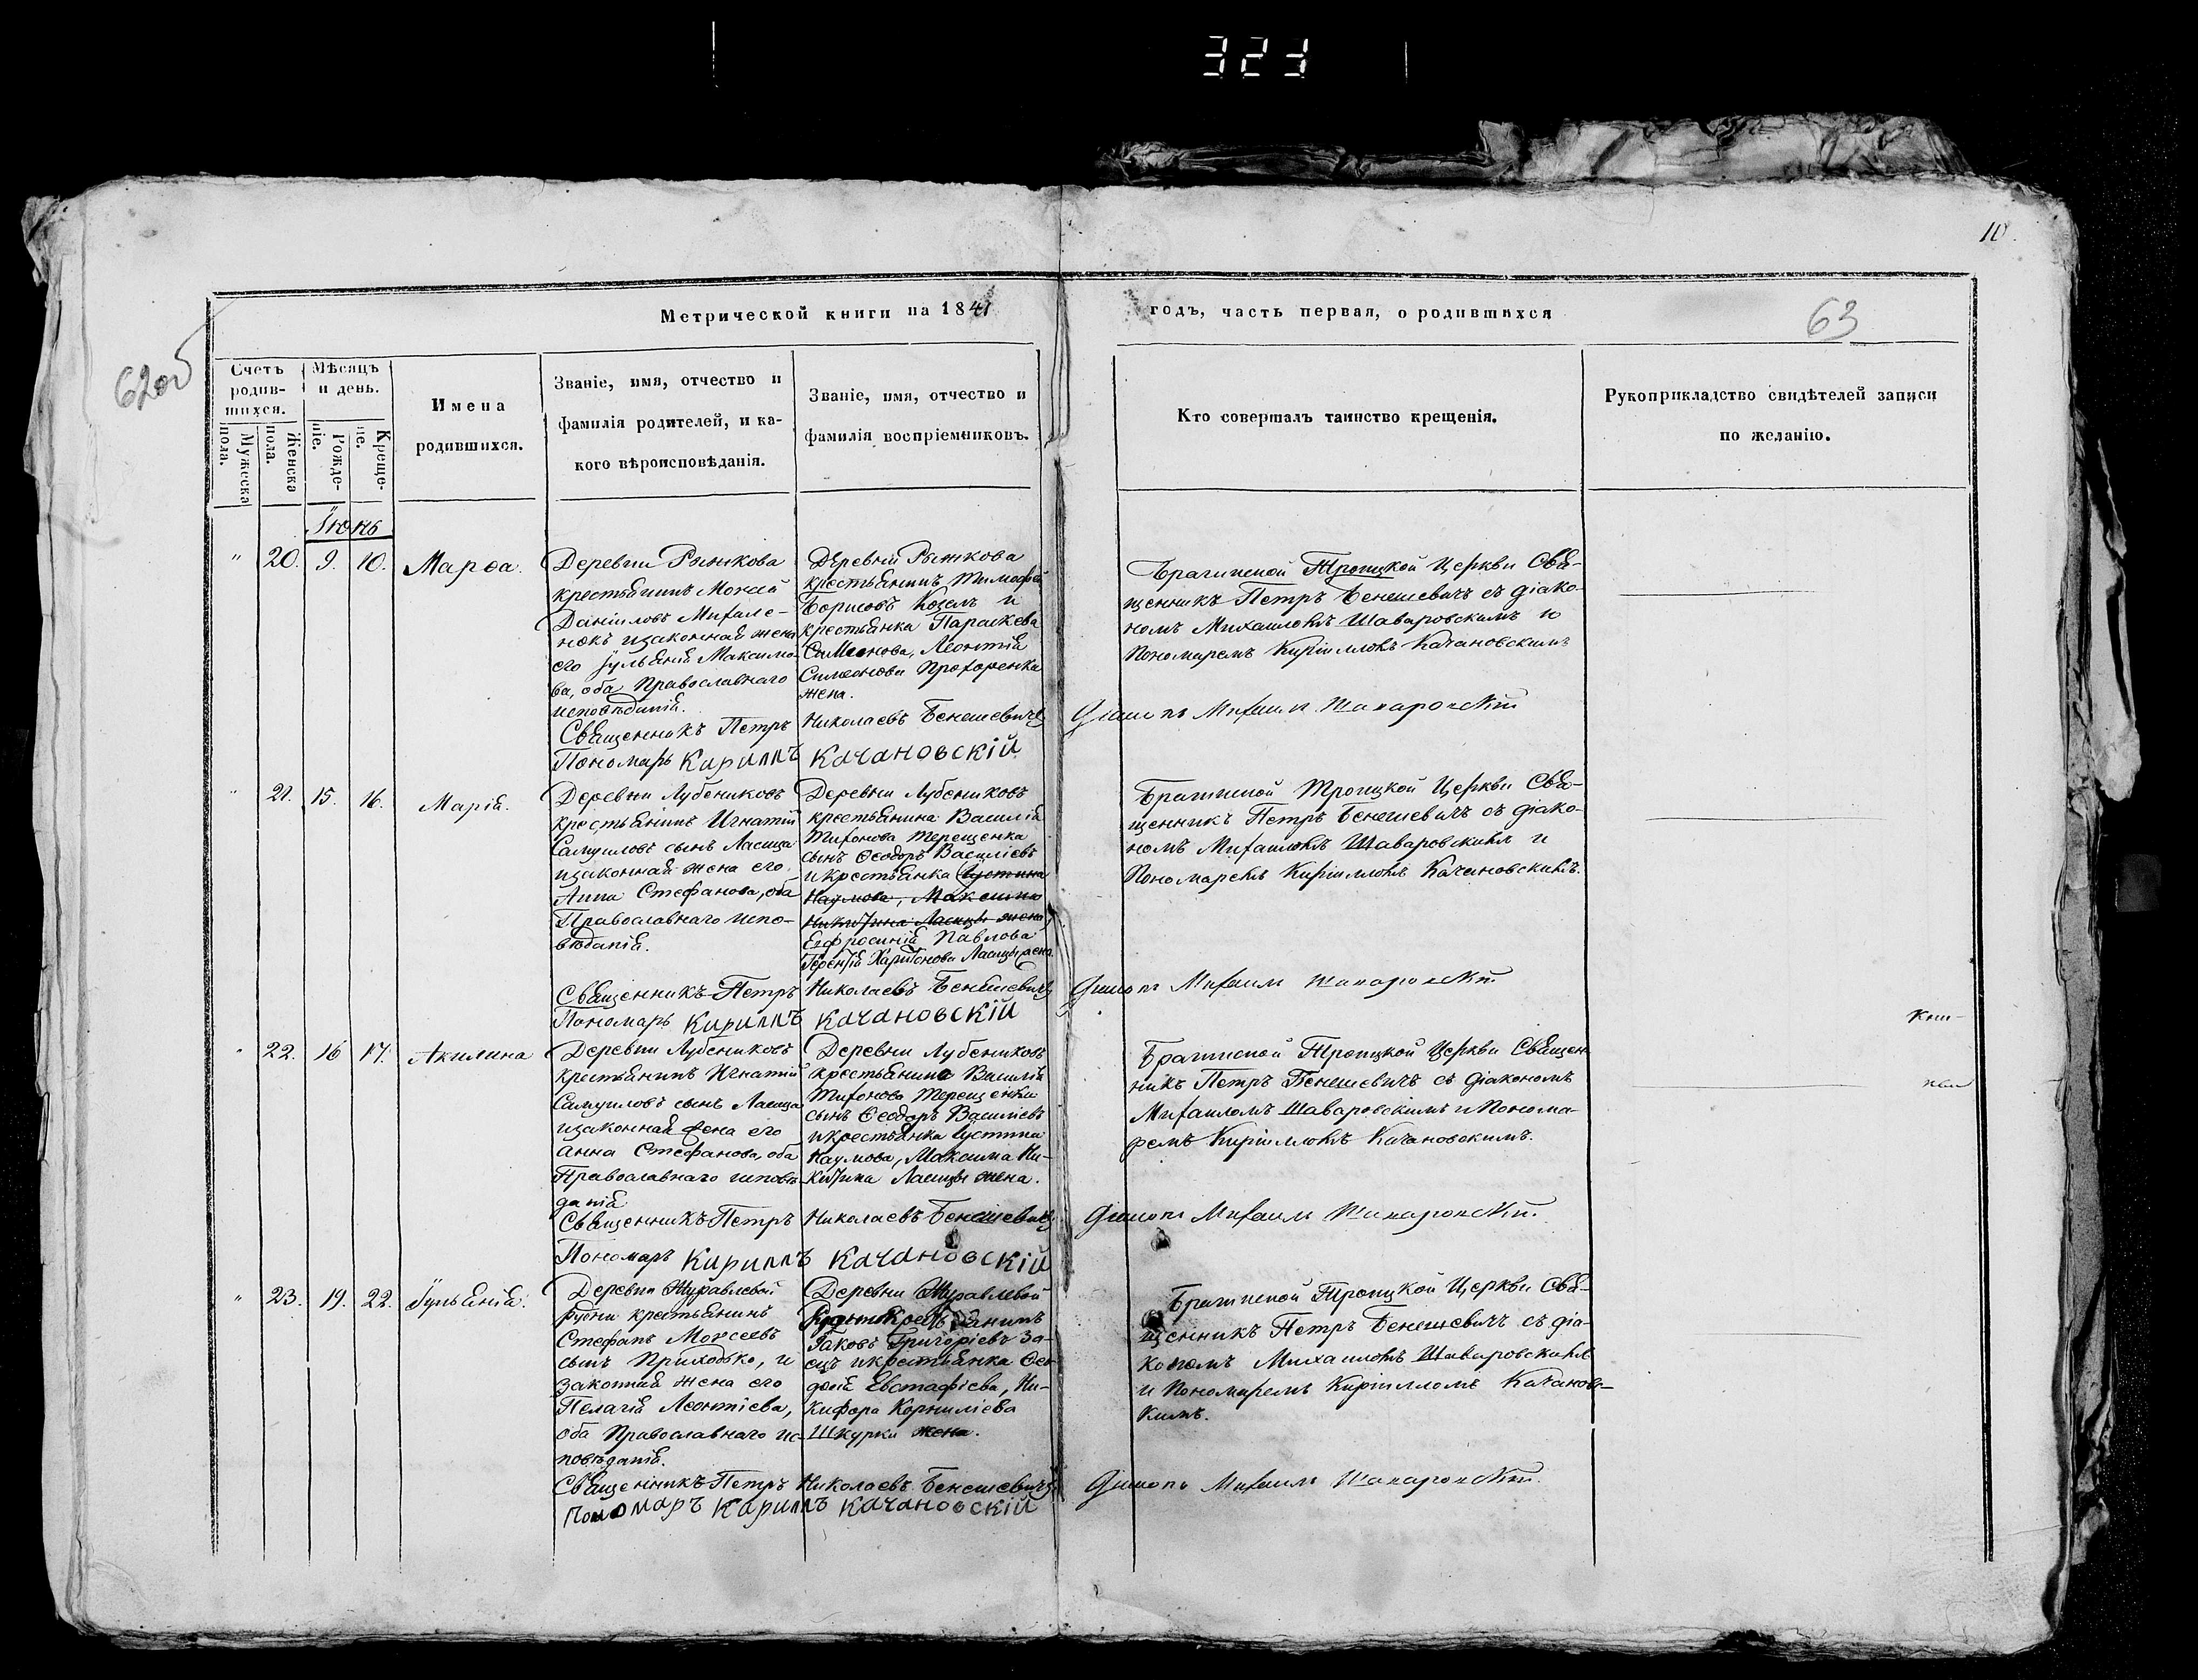 323
10.
Метрической книги на 1841
годъ, часть первая, о родившихся
63
62об
Счетъ родив-шихся.
Мѣсяцъ и день.
Имена родившихся.
Званіе, имя, отчество и фамилія родителей, и ка-кого вѣроисповѣданія.
Званіе, имя, отчество и фамилія воспріемниковъ.
Кто совершалъ таинство крещенія.
Рукоприкладство свидѣтелей записи по желанію.
Мужеска пола.
Женска пола.
Рожде-ніе.
Креще-ніе.
Іюнь
" 20. 9. 10. Марѳа.
Деревни Рыжкова
крестьянинъ Моисей
Даніиловъ Михале-
нокъ изаконная жена
его Іульянія Максимо-
ва, оба Православнаго
исповѣданія.
Деревни Рыжкова
крестьянинъ Тимофей
Борисовъ Козелъ и
крестьянка Параскева
Симеонова, Леонтія
Симеонова Прохоренка
жена.
Брагинской Троицкой Церкви Свя-
щенникъ Петръ Бенешевичъ съ діако-
номъ Михаиломъ Шаваровскимъ и
Пономаремъ Кирилломъ Качановскимъ
Священникъ Петръ Николаевъ Бенешевичъ
Діаконъ Михаилъ Шаваровскій
Пономарь Кириллъ Качановскій
" 21. 15. 16. Марія.
Деревни Лубениковъ
крестьянинъ Игнатій
Самуиловъ сынъ Ласица
изаконная жена его
Анна Стефанова, оба
Православнаго испо-
вѣданія.
Деревни Лубениковъ
крестьянина Василія
Тихонова Терещенка
сынъ Ѳеодоръ Василіевъ
икрестьянка Іустина
Наумова, Максима
Никитина Ласицы жена
Евфросинія Павлова
Харитонова Ласицы жена
Брагинской Троицкой Церкви Свя-
щенникъ Петръ Бенешевичъ съ діако-
номъ Михаиломъ Шаваровскимъ и
Пономаремъ Кирилломъ Качановскимъ.
Священникъ Петръ Николаевъ Бенешевичъ
Діаконъ Михаилъ Шаваровскій
Пономарь Кириллъ Качановскій
" 22. 16 17. Акилина
Деревни Лубениковъ
крестьянинъ Игнатій
Самуиловъ сынъ Ласица
изаконная жена его
Анна Стефанова, оба
Православнаго исповѣ-
данія
Деревни Лубениковъ
крестьянина Василія
Тихонова Терещенка
сынъ Ѳеодоръ Василіевъ
икрестьянка Іустина
Наумова, Максима Ни-
китина Ласицы жена.
Брагинской Троицкой Церкви Священ
никъ Петръ Бенешевичъ съ діакономъ
Михаиломъ Шаваровскимъ и Понома-
ремъ Кирилломъ Качановскимъ.
Священникъ Петръ Николаевъ Бенешевичъ
Діаконъ Михаилъ Шаваровскій.
Пономарь Кириллъ Качановскій
" 23. 19. 22. Іульянія.
Деревни Журавлевой
рудни крестьянинъ
Стефанъ Моисеевъ
сынъ Приходько, и
законная жена его
Пелагія Леонтіева,
оба Православнаго ис-
повѣданія.
Деревни Журавлевой
Рудни крестьянинъ
Іаковъ Григоріевъ За-
ецъ икрестьянка Ѳео-
досія Евстафіева, Ни-
кифора Корниліева
Шкурки жена.
Брагинской Троицкой Церкви Свя-
щенникъ Петръ Бенешевичъ съ діа-
кономъ Михаиломъ Шаваровскимъ
и Пономаремъ Кирилломъ Качановс-
кимъ.
Священникъ Петръ Николаевъ Бенешевичъ
Діаконъ Михаилъ Шаваровскій.
Пономарь Кириллъ Качановскій